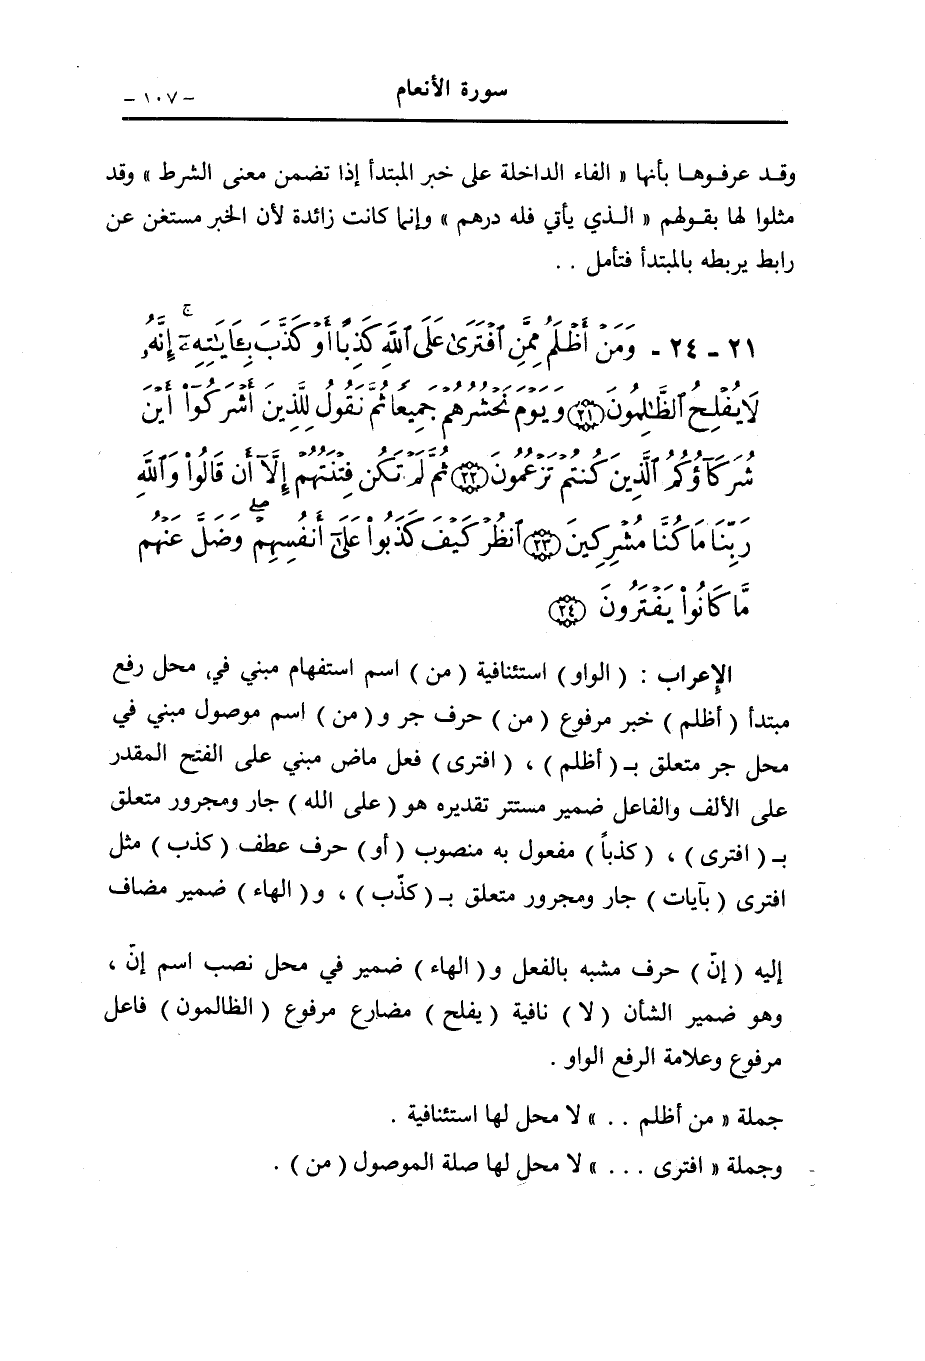 سورة الأنعام
– ١٠٧ –
وقـد عرفـوهـا بأنها « الفاء الداخلة على خبر المبتدأ إذا تضمن معنى الشرط » وقد
مثلوا لها بقـولهم « الـذي يأتي فله درهم » وإنما كانت زائدة لأن الخبر مستغن عن
رابط يربطه بالمبتدأ فتأمل . .
٢١ - ٢٤ - وَمَنْ أَظْلَمُ مِمَّنِ ٱفْتَرَىٰ عَلَى ٱللَّهِ كَذِبًا أَوْ كَذَّبَ بِـَٔايَـٰتِهِۦٓ ۚ إِنَّهُۥ
لَا يُفْلِحُ ٱلظَّـٰلِمُونَ ﴿٢١﴾ وَيَوْمَ نَحْشُرُهُمْ جَمِيعًا ثُمَّ نَقُولُ لِلَّذِينَ أَشْرَكُوٓا۟ أَيْنَ
شُرَكَآؤُكُمُ ٱلَّذِينَ كُنتُمْ تَزْعُمُونَ ﴿٢٢﴾ ثُمَّ لَمْ تَكُن فِتْنَتُهُمْ إِلَّآ أَن قَالُوا۟ وَٱللَّهِ
رَبِّنَا مَا كُنَّا مُشْرِكِينَ ﴿٢٣﴾ ٱنظُرْ كَيْفَ كَذَبُوا۟ عَلَىٰٓ أَنفُسِهِمْ ۖ وَضَلَّ عَنْهُم
مَّا كَانُوا۟ يَفْتَرُونَ ﴿٢٤﴾
الإعراب : ( الواو ) استئنافية ( من ) اسم استفهام مبني في محل رفع
مبتدأ ( أظلم ) خبر مرفوع ( من ) حرف جر و( من ) اسم موصول مبني في
محل جر متعلق بـ ( أظلم ) ، ( افترى ) فعل ماض مبني على الفتح المقدر
على الألف والفاعل ضمير مستتر تقديره هو ( على الله ) جار ومجرور متعلق
بـ ( افترى ) ، ( كذباً ) مفعول به منصوب ( أو ) حرف عطف ( كذب ) مثل
افترى ( بآيات ) جار ومجرور متعلق بـ ( كذّب ) ، و( الهاء ) ضمير مضاف
إليه ( إنّ ) حرف مشبه بالفعل و( الهاء ) ضمير في محل نصب اسم إنّ ،
وهو ضمير الشأن ( لا ) نافية ( يفلح ) مضارع مرفوع ( الظالمون ) فاعل
مرفوع وعلامة الرفع الواو .
جملة « من أظلم . . » لا محل لها استئنافية .
وجملة « افترى . . . » لا محل لها صلة الموصول ( من ) .